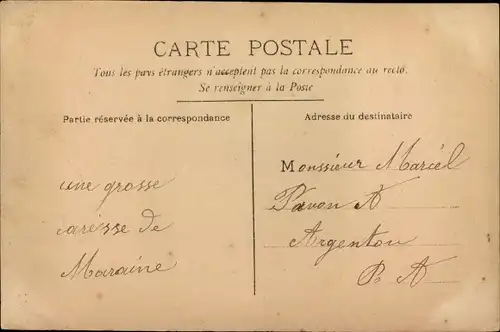 CARTE POSTALE
Tous les pays étrangers n'acceptent pas la correspondance au recto.
Se renseigner à la Poste
Partie réservée à la correspondance
une grosse
caresse de
Maraine
Adresse du destinataire
Monssieur Marcel
Pavon A
Argenton
P. A